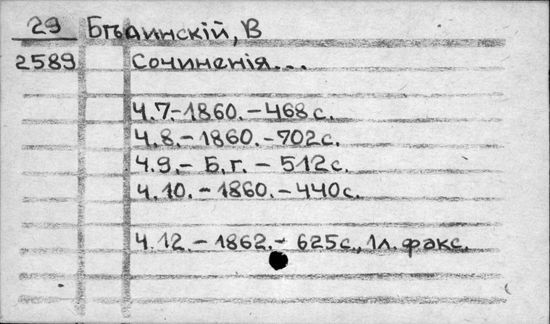 29 Бѣлинскій, В
2589 Сочиненія...
Ч.7.-1860.-468с.
Ч.8.-1860.-702с.
Ч.9.-Б.г.-512с.
Ч.10.-1860.-440с.
Ч.12.-1862.-625с., 1л. факс.